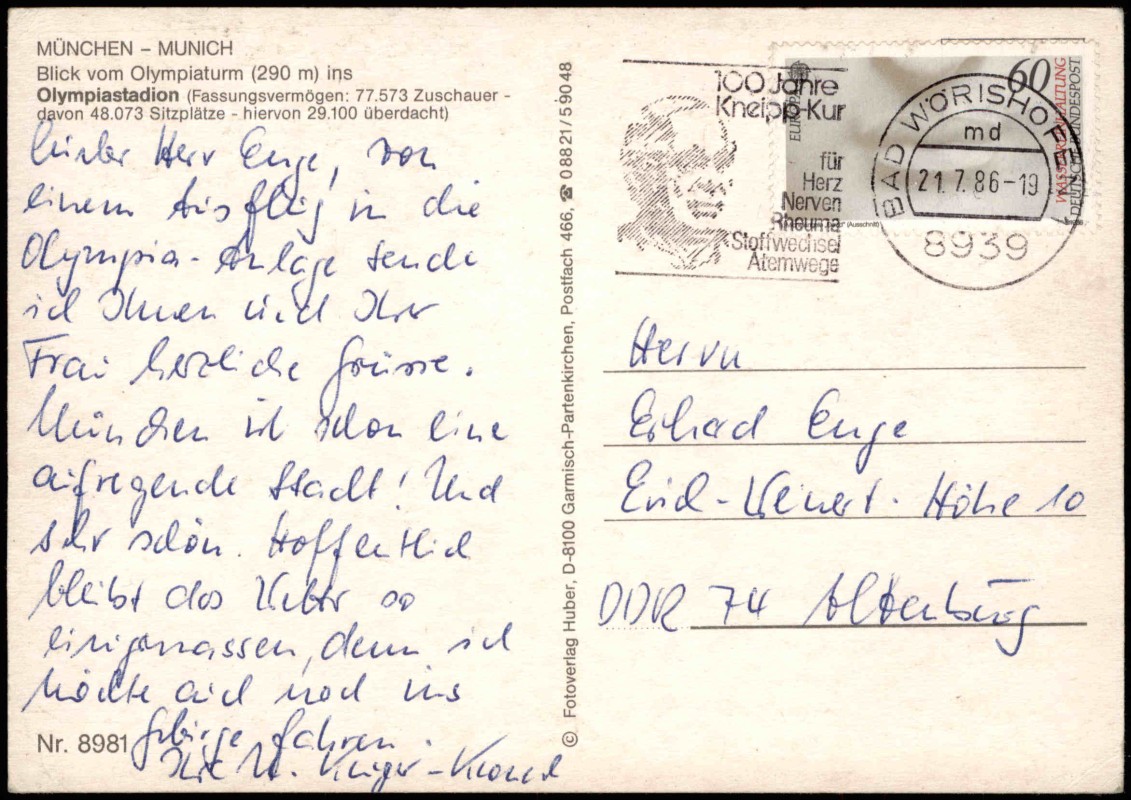 MÜNCHEN – MUNICH
Blick vom Olympiaturm (290 m) ins
Olympiastadion (Fassungsvermögen: 77.573 Zuschauer -
davon 48.073 Sitzplätze - hiervon 29.100 überdacht)
Lieber Herr Enge, von
einem Ausflug in die
Olympia-Anlage sende
ich Ihnen und Ihrer
Frau herzliche Grüsse.
München ist schon eine
aufregende Stadt! Und
sehr schön. Hoffentlich
bleibt das Wetter so
einigermassen, denn ich
möchte auch noch ins
Gebirge fahren.
Nr. 8981
Ihre
© Fotoverlag Huber, D-8100 Garmisch-Partenkirchen, Postfach 466, ☎ 08821/59048
100 Jahre
Kneipp-Kur
für
Herz
Nerven
Rheuma
Stoffwechsel
Atemwege
EUROPA
60
DEUTSCHE BUNDESPOST
(Ausschnitt)
BAD WÖRISHOFEN
md
21.7.86-19
8939
Herrn
Erhard Enge
Erich-Weinert-Höhe 10
DDR 74 Altenburg